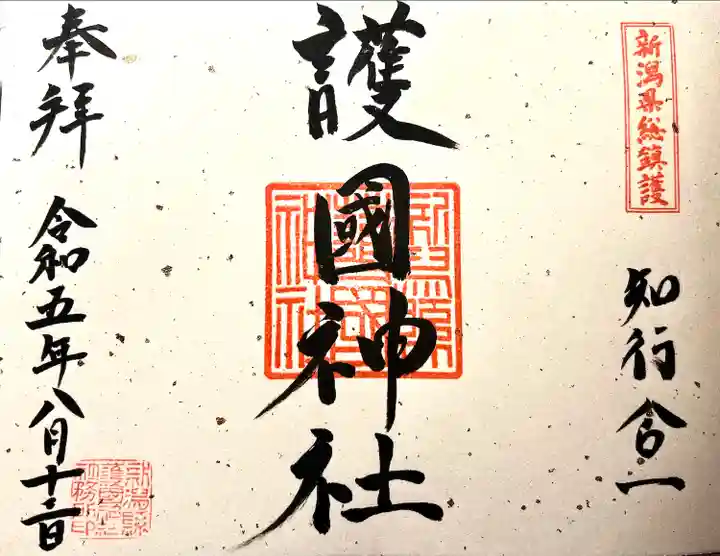 新潟県総鎮護
知行合一
護國神社
新潟縣護國神社
奉拝
令和五年八月十二日
新潟縣護國神社社務所印